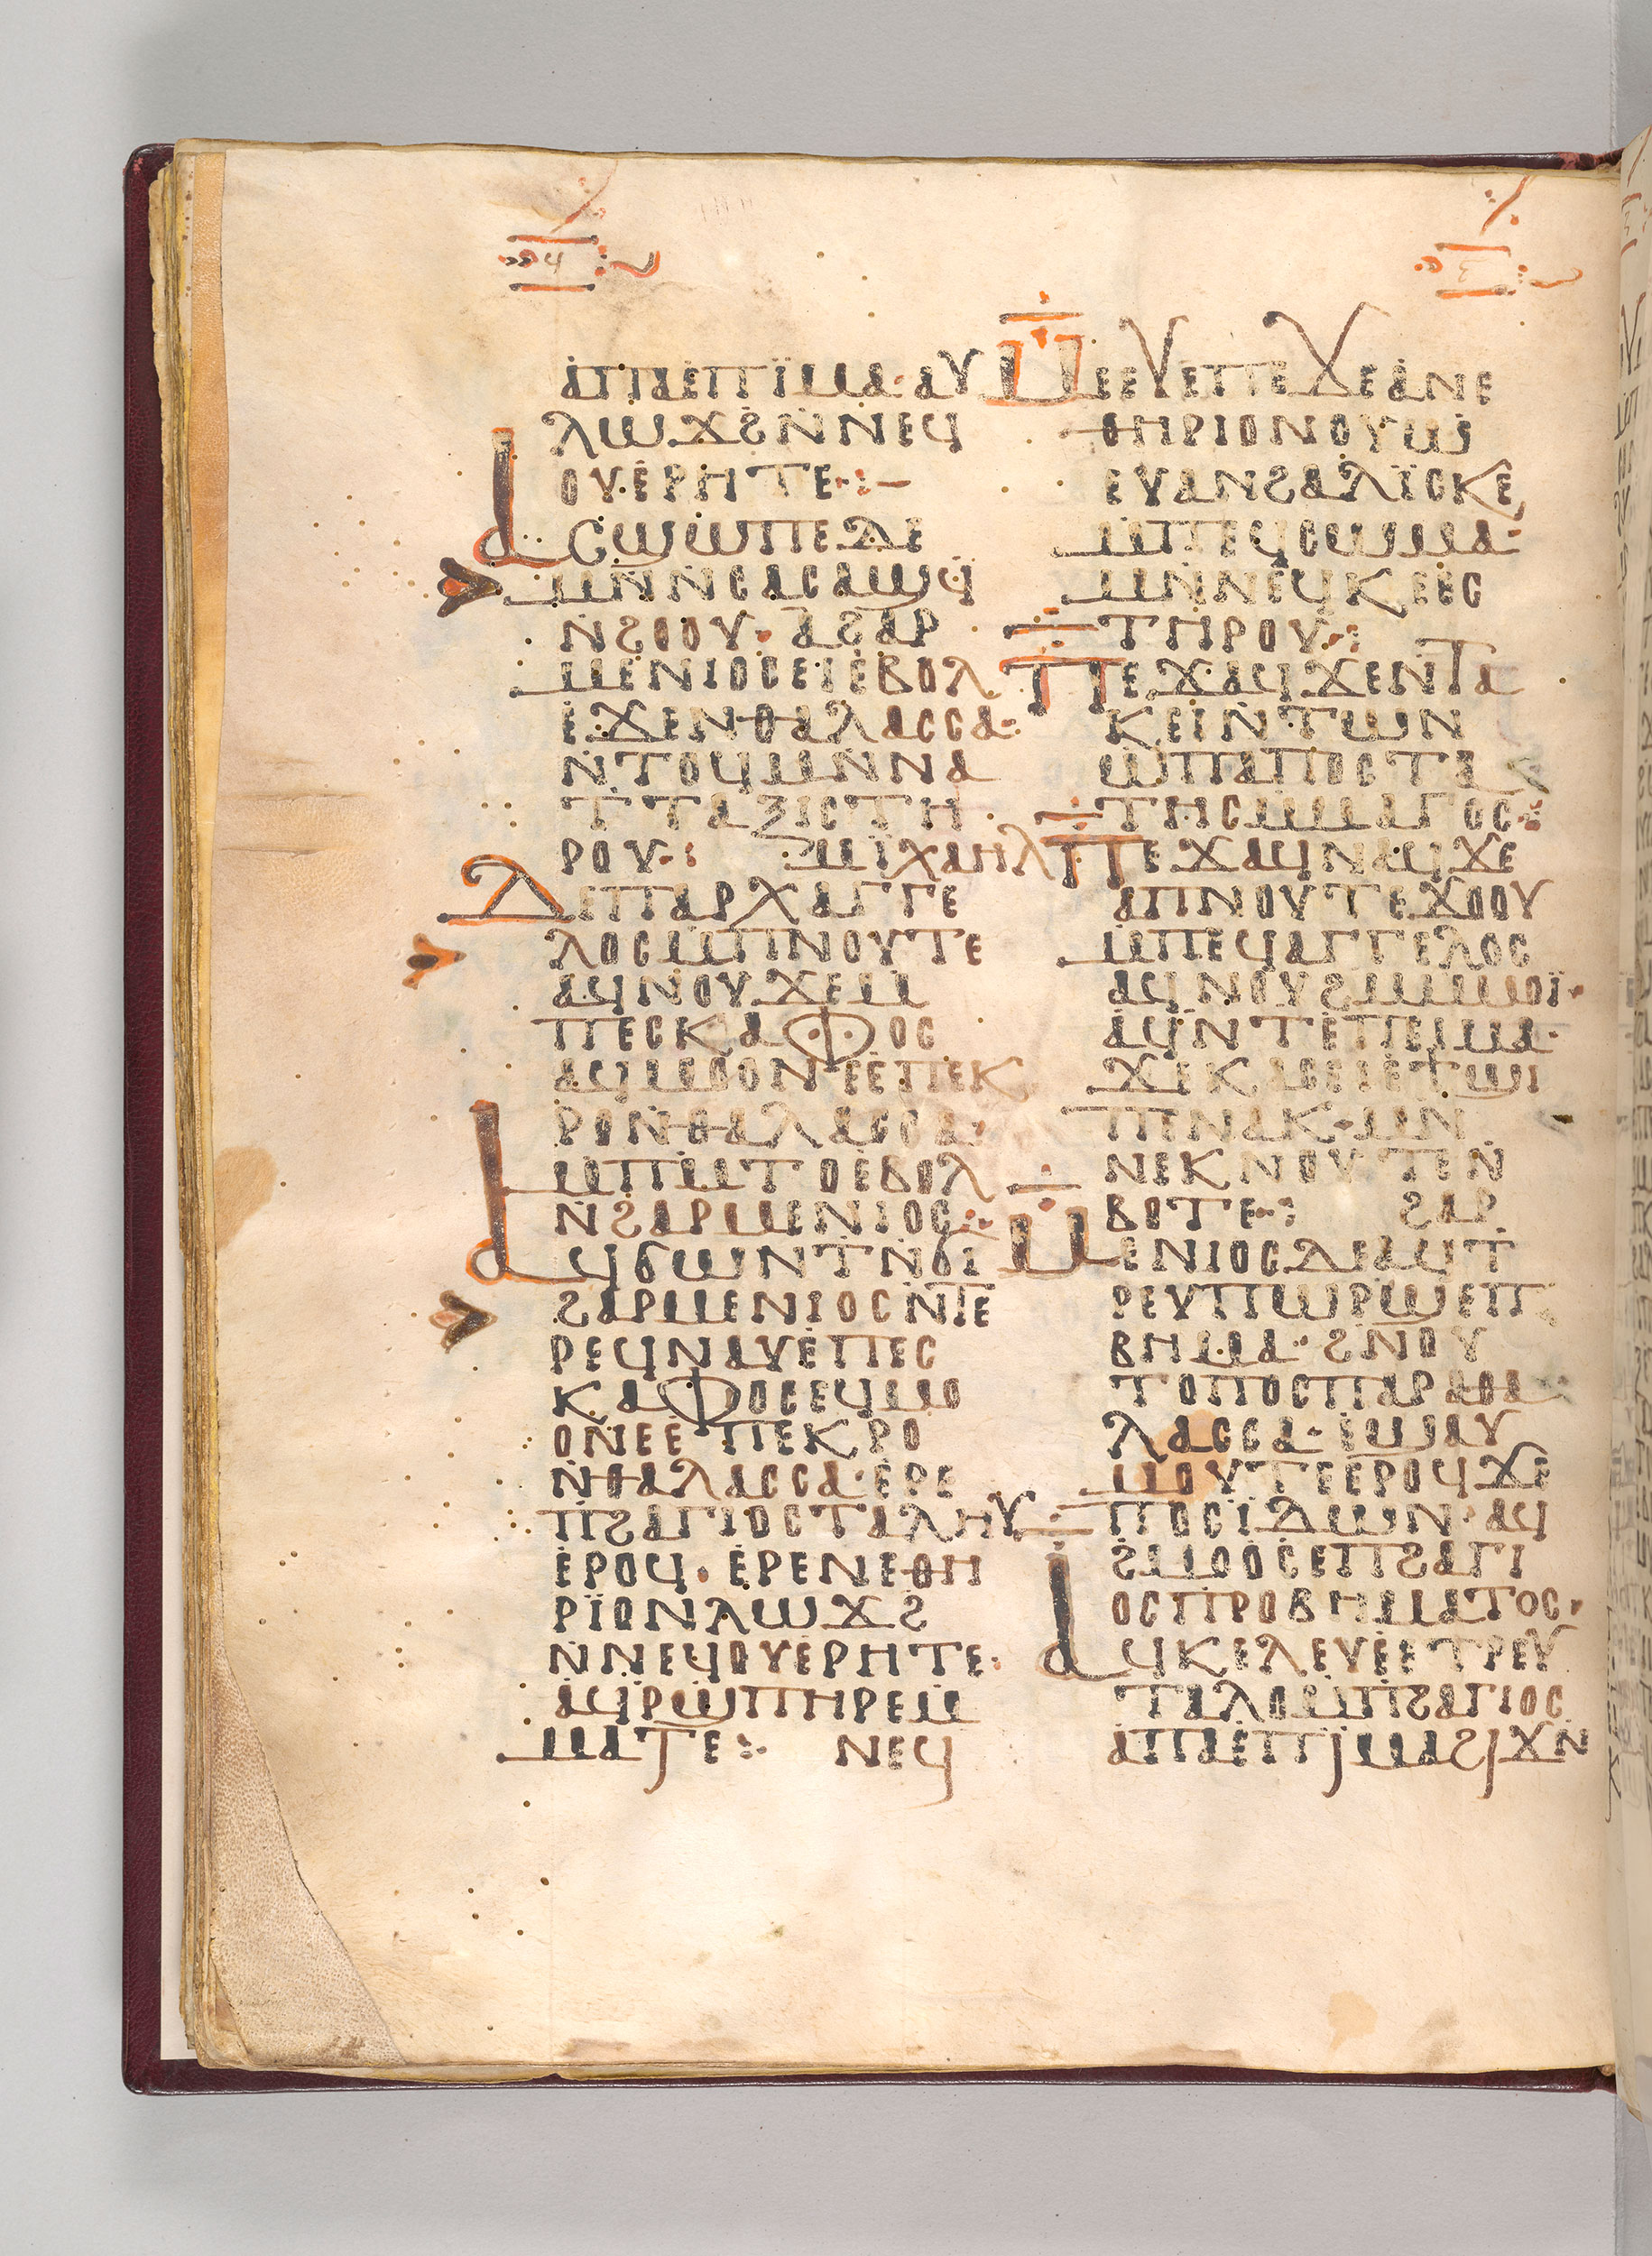 ϥ
ⲁⲡⲁⲉⲡⲓⲙⲁ· ⲁⲩ
ⲗⲱϫϩⲛⲛⲉϥ
ⲟⲩⲉⲣⲏⲧⲉ·:—
ⲁⲥϣⲱⲡⲉⲇⲉ
ⲙⲛⲛⲥⲁⲥⲁϣϥ
ⲛϩⲟⲟⲩ· ⲁϩⲁⲣ
ⲙⲉⲛⲓⲟⲥⲉⲓⲉⲃⲟⲗ
ⲉϫⲉⲛⲑⲁⲗⲁⲥⲥⲁ:
ⲛⲧⲟϥⲙⲛⲛⲁ
ⲧⲧⲁⲝⲓⲥⲧⲏ
ⲣⲟⲩ·: ⲙⲓⲭⲁⲏⲗ
ⲇⲉⲡⲁⲣⲭⲁⲅⲅⲉ
ⲗⲟⲥⲙⲡⲛⲟⲩⲧⲉ
ⲁϥⲛⲟⲩϫⲉⲙ
ⲡⲉⲥⲕⲁⲫⲟⲥ
ⲁϥⲙⲟⲟⲛⲉⲉⲡⲉⲕ
ⲣⲟⲛⲑⲁⲗⲁⲥⲥⲁ·
ⲙⲡⲙⲧⲟⲉⲃⲟⲗ
ⲛϩⲁⲣⲙⲉⲛⲓⲟⲥ·:
ⲁϥϭⲱⲛⲧⲛϭⲓ
ϩⲁⲣⲙⲉⲛⲓⲟⲥⲛⲧⲉ
ⲣⲉϥⲛⲁⲩⲉⲡⲉⲥ
ⲕⲁⲫⲟⲥⲉϥⲙⲟ
ⲟⲛⲉⲉⲡⲉⲕⲣⲟ
ⲛⲑⲁⲗⲁⲥⲥⲁ· ⲉⲣⲉ
ⲡϩⲁⲅⲓⲟⲥⲧⲁⲗⲏⲩ
ⲉⲣⲟϥ· ⲉⲣⲉⲛⲉⲑⲏ
ⲣⲓⲟⲛⲗⲱϫϩ
ⲛⲛⲉϥⲟⲩⲉⲣⲏⲧⲉ·
ⲁϥⲣϣⲡⲏⲣⲉⲙ
ⲙⲁⲧⲉ:· ⲛⲉϥ
ⲙⲉⲉⲩⲉⲡⲉϫⲉⲁⲛⲉ
ⲑⲏⲣⲓⲟⲛⲟⲩⲱ
ⲉⲩⲁⲛϩⲁⲗⲓⲥⲕⲉ
ⲙⲡⲉϥⲥⲱⲙⲁ·
ⲙⲛⲛⲉϥⲕⲉⲉⲥ
ⲧⲏⲣⲟⲩ·:
ⲡⲉϫⲁϥϫⲉⲛⲧⲁ
ⲕⲉⲓⲛⲧⲱⲛ
ⲱⲡⲁⲡⲟⲥⲧⲁ
ⲧⲏⲥⲙⲙⲁⲅⲟⲥ·:
ⲡⲉϫⲁϥⲛⲁϥϫⲉ
ⲁⲡⲛⲟⲩⲧⲉϫⲟⲟⲩ
ⲙⲡⲉϥⲁⲅⲅⲉⲗⲟⲥ
ⲁϥⲛⲟⲩϩⲙⲙⲙⲟⲓ·
ⲁϥⲛⲧⲉⲡⲉⲓⲙⲁ·
ϫⲉⲕⲁⲥⲉⲓⲉϯϣⲓ
ⲡⲉⲛⲁⲕ· ⲙⲛ
ⲛⲉⲕⲛⲟⲩⲧⲉⲛ
ⲃⲟⲧⲉ·: ϩⲁⲣ
ⲙⲉⲛⲓⲟⲥⲇⲉⲁϥⲧ
ⲣⲉⲩⲡⲱⲣϣⲉⲡ
ⲃⲏⲙⲁ· ϩⲛⲟⲩ
ⲧⲟⲡⲟⲥⲡⲁⲣⲁⲑⲁ
ⲗⲁⲥⲥⲁ· ⲉϣⲁⲩ
ⲙⲟⲩⲧⲉⲉⲣⲟϥϫⲉ
ⲡⲟⲥⲓⲇⲱⲛ· ⲁϥ
ϩⲙⲟⲟⲥⲉⲡϩⲁⲅⲓ
ⲟⲥⲡⲣⲟⲃⲏⲙⲁⲧⲟⲥ·
ⲁϥⲕⲉⲗⲉⲩⲉⲉⲧⲣⲉⲩ
ⲧⲁⲗⲟⲙⲡϩⲁⲅⲓⲟⲥ
ⲁⲡⲁⲉⲡⲓⲙⲁϩⲓϫⲛ